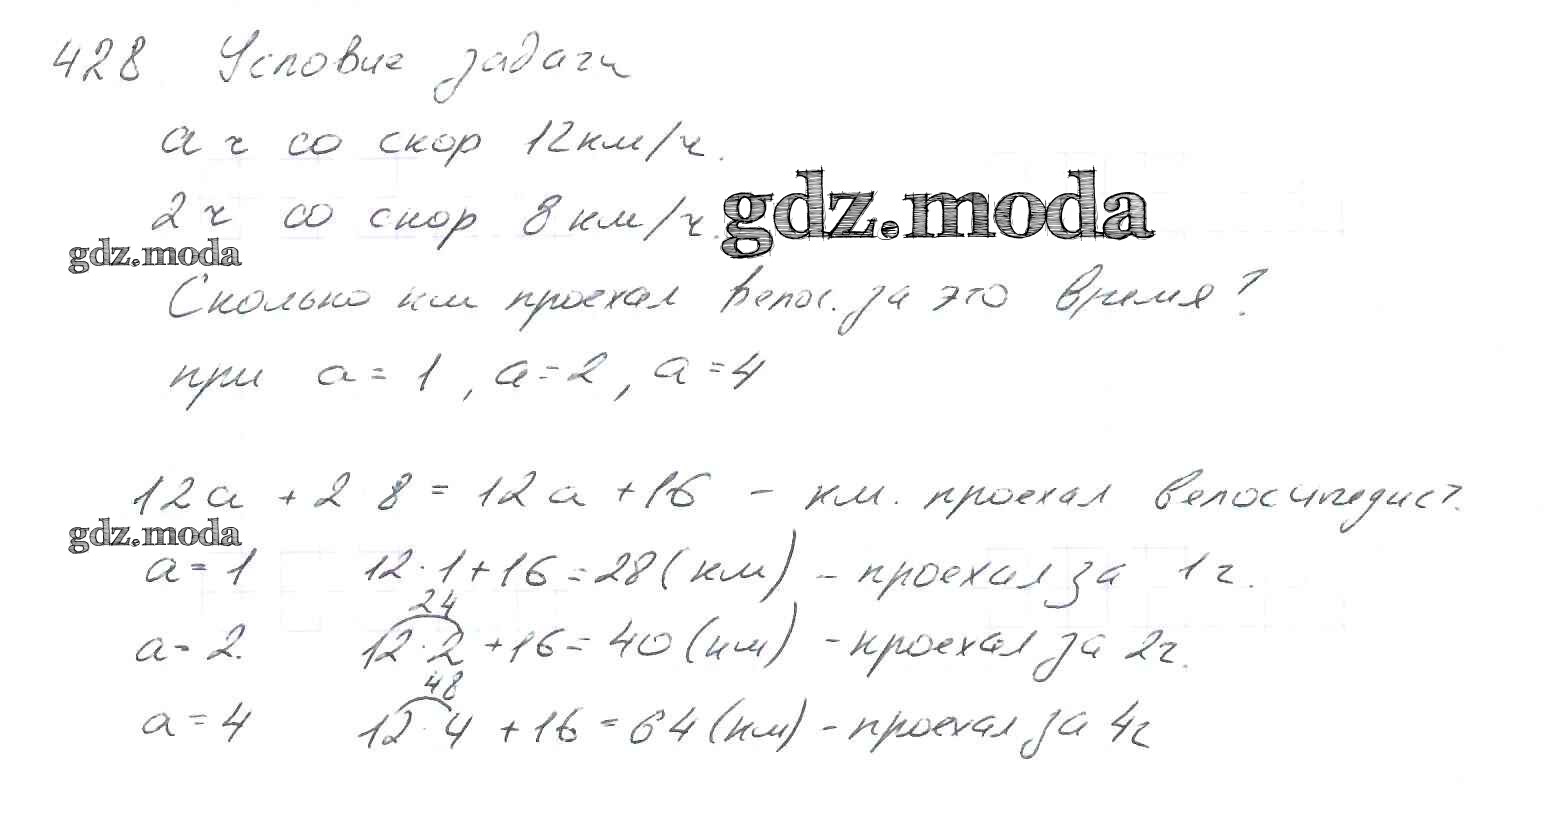 428 Условие задачи
а ч со скор 12км/ч.
2 ч со скор 8 км/ч.
gdz.moda
gdz.moda
Сколько км проехал велос. за это время?
при а = 1, а = 2, а = 4
12а + 2 8 = 12а + 16 – км. проехал велосипедист.
gdz.moda
а = 1 12·1 + 16 = 28 (км) – проехал за 1ч.
24
а = 2. 12·2 + 16 = 40 (км) – проехал за 2ч.
48
а = 4 12·4 + 16 = 64 (км) – проехал за 4ч